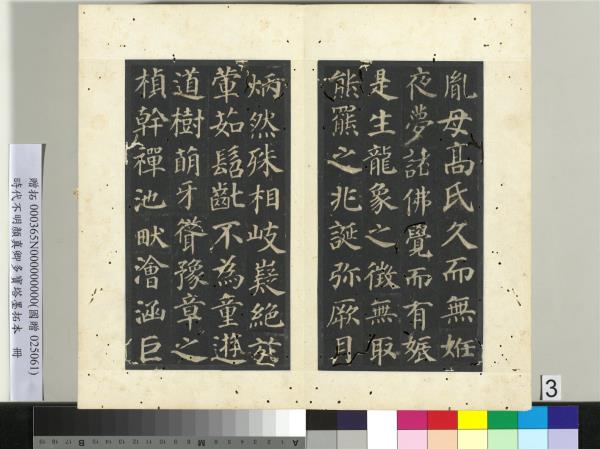 胤母高氏久而無姙
夜夢諸佛覺而有娠
是生龍象之徵無取
熊羆之兆誕弥厥月
炳然殊相岐嶷絶於
葷茹髫齔不為童遊
道樹萌牙聳豫章之
楨幹禪池畎澮涵巨
贈拓 000365N000000000(國贈 025061)
時代不明顏真卿多寶塔墨拓本 冊
3